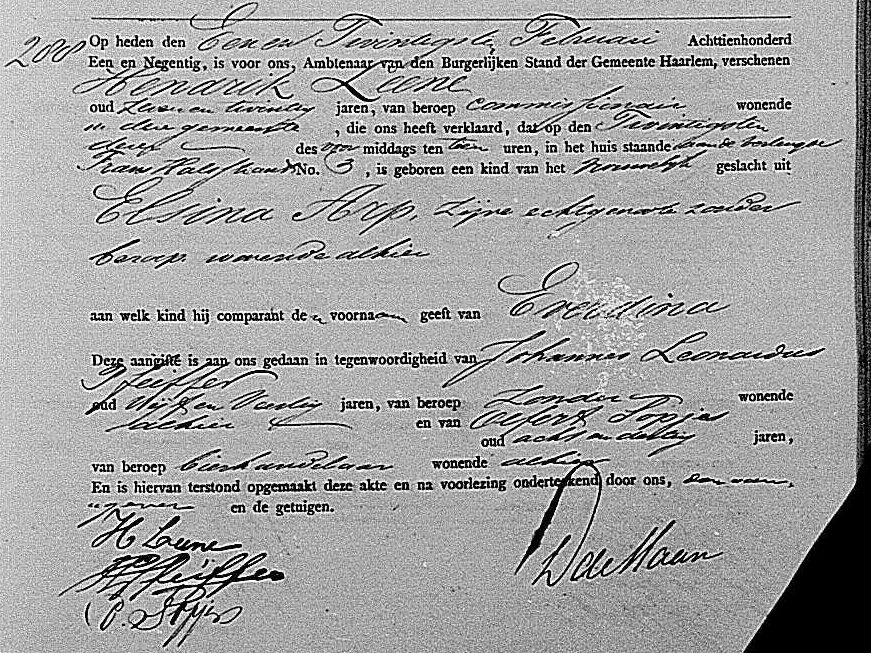 Op heden den Een en Twintigsten Februari Achttienhonderd
Een en Negentig, is voor ons, Ambtenaar van den Burgerlijken Stand der Gemeente Haarlem, verschenen
Hendrik Leene
oud zeven en twintig jaren, van beroep commissionair wonende
in deze gemeente, die ons heeft verklaard, dat op den Twintigsten
dezer des voor middags ten tien uren, in het huis staande aan de
Frans Hals No. 3, is geboren een kind van het vrouwelijk geslacht uit
Elsina Arp, zijne echtgenoote zonder
beroep wonende alhier
aan welk kind hij comparant de n voornaam geeft van Everdina
Deze aangifte is aan ons gedaan in tegenwoordigheid van Johannes Leonardus
Pfeiffer
oud vijf en Veertig jaren, van beroep Zonder wonende
alhier en van
oud acht en dertig jaren,
van beroep bierhandelaar wonende alhier
En is hiervan terstond opgemaakt deze akte en na voorlezing onderteekend door ons, den aan-
gever en de getuigen.
H Leene
Pfeiffer
D de Haan